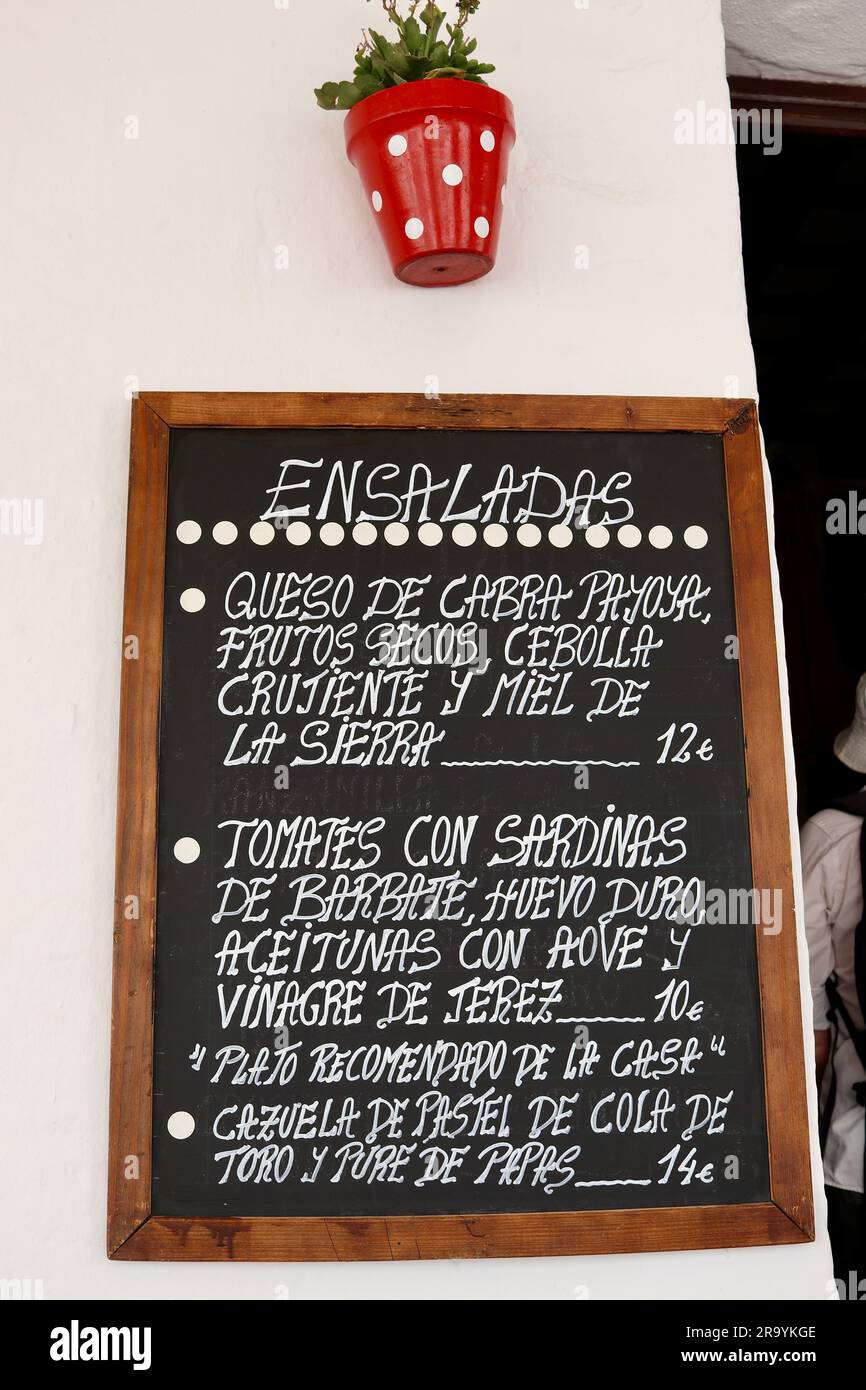 ENSALADAS
QUESO DE CABRA PAYOYA,
FRUTOS SECOS, CEBOLLA
CRUJIENTE Y MIEL DE
LA SIERRA ______ 12€
TOMATES CON SARDINAS
DE BARBATE, HUEVO DURO,
ACEITUNAS CON AOVE Y
VINAGRE DE JEREZ ____ 10€
"PLATO RECOMENDADO DE LA CASA"
CAZUELA DE PASTEL DE COLA DE
TORO Y PURE DE PAPAS ____ 14€
alamy
Image ID: 2R9YKGE
www.alamy.com